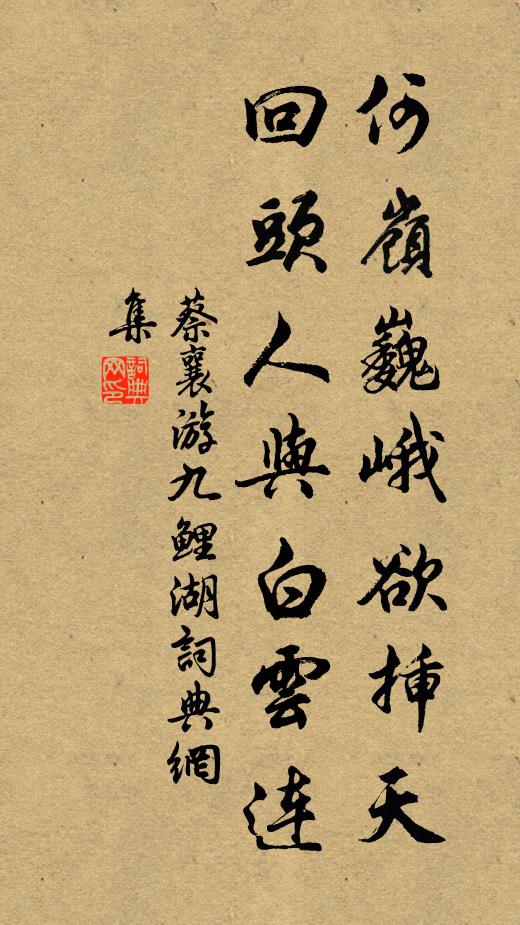 何嶺巍峨欲插天
回頭人與白雲連
蔡襄游九鯉湖詞典網
集
詞典
网印